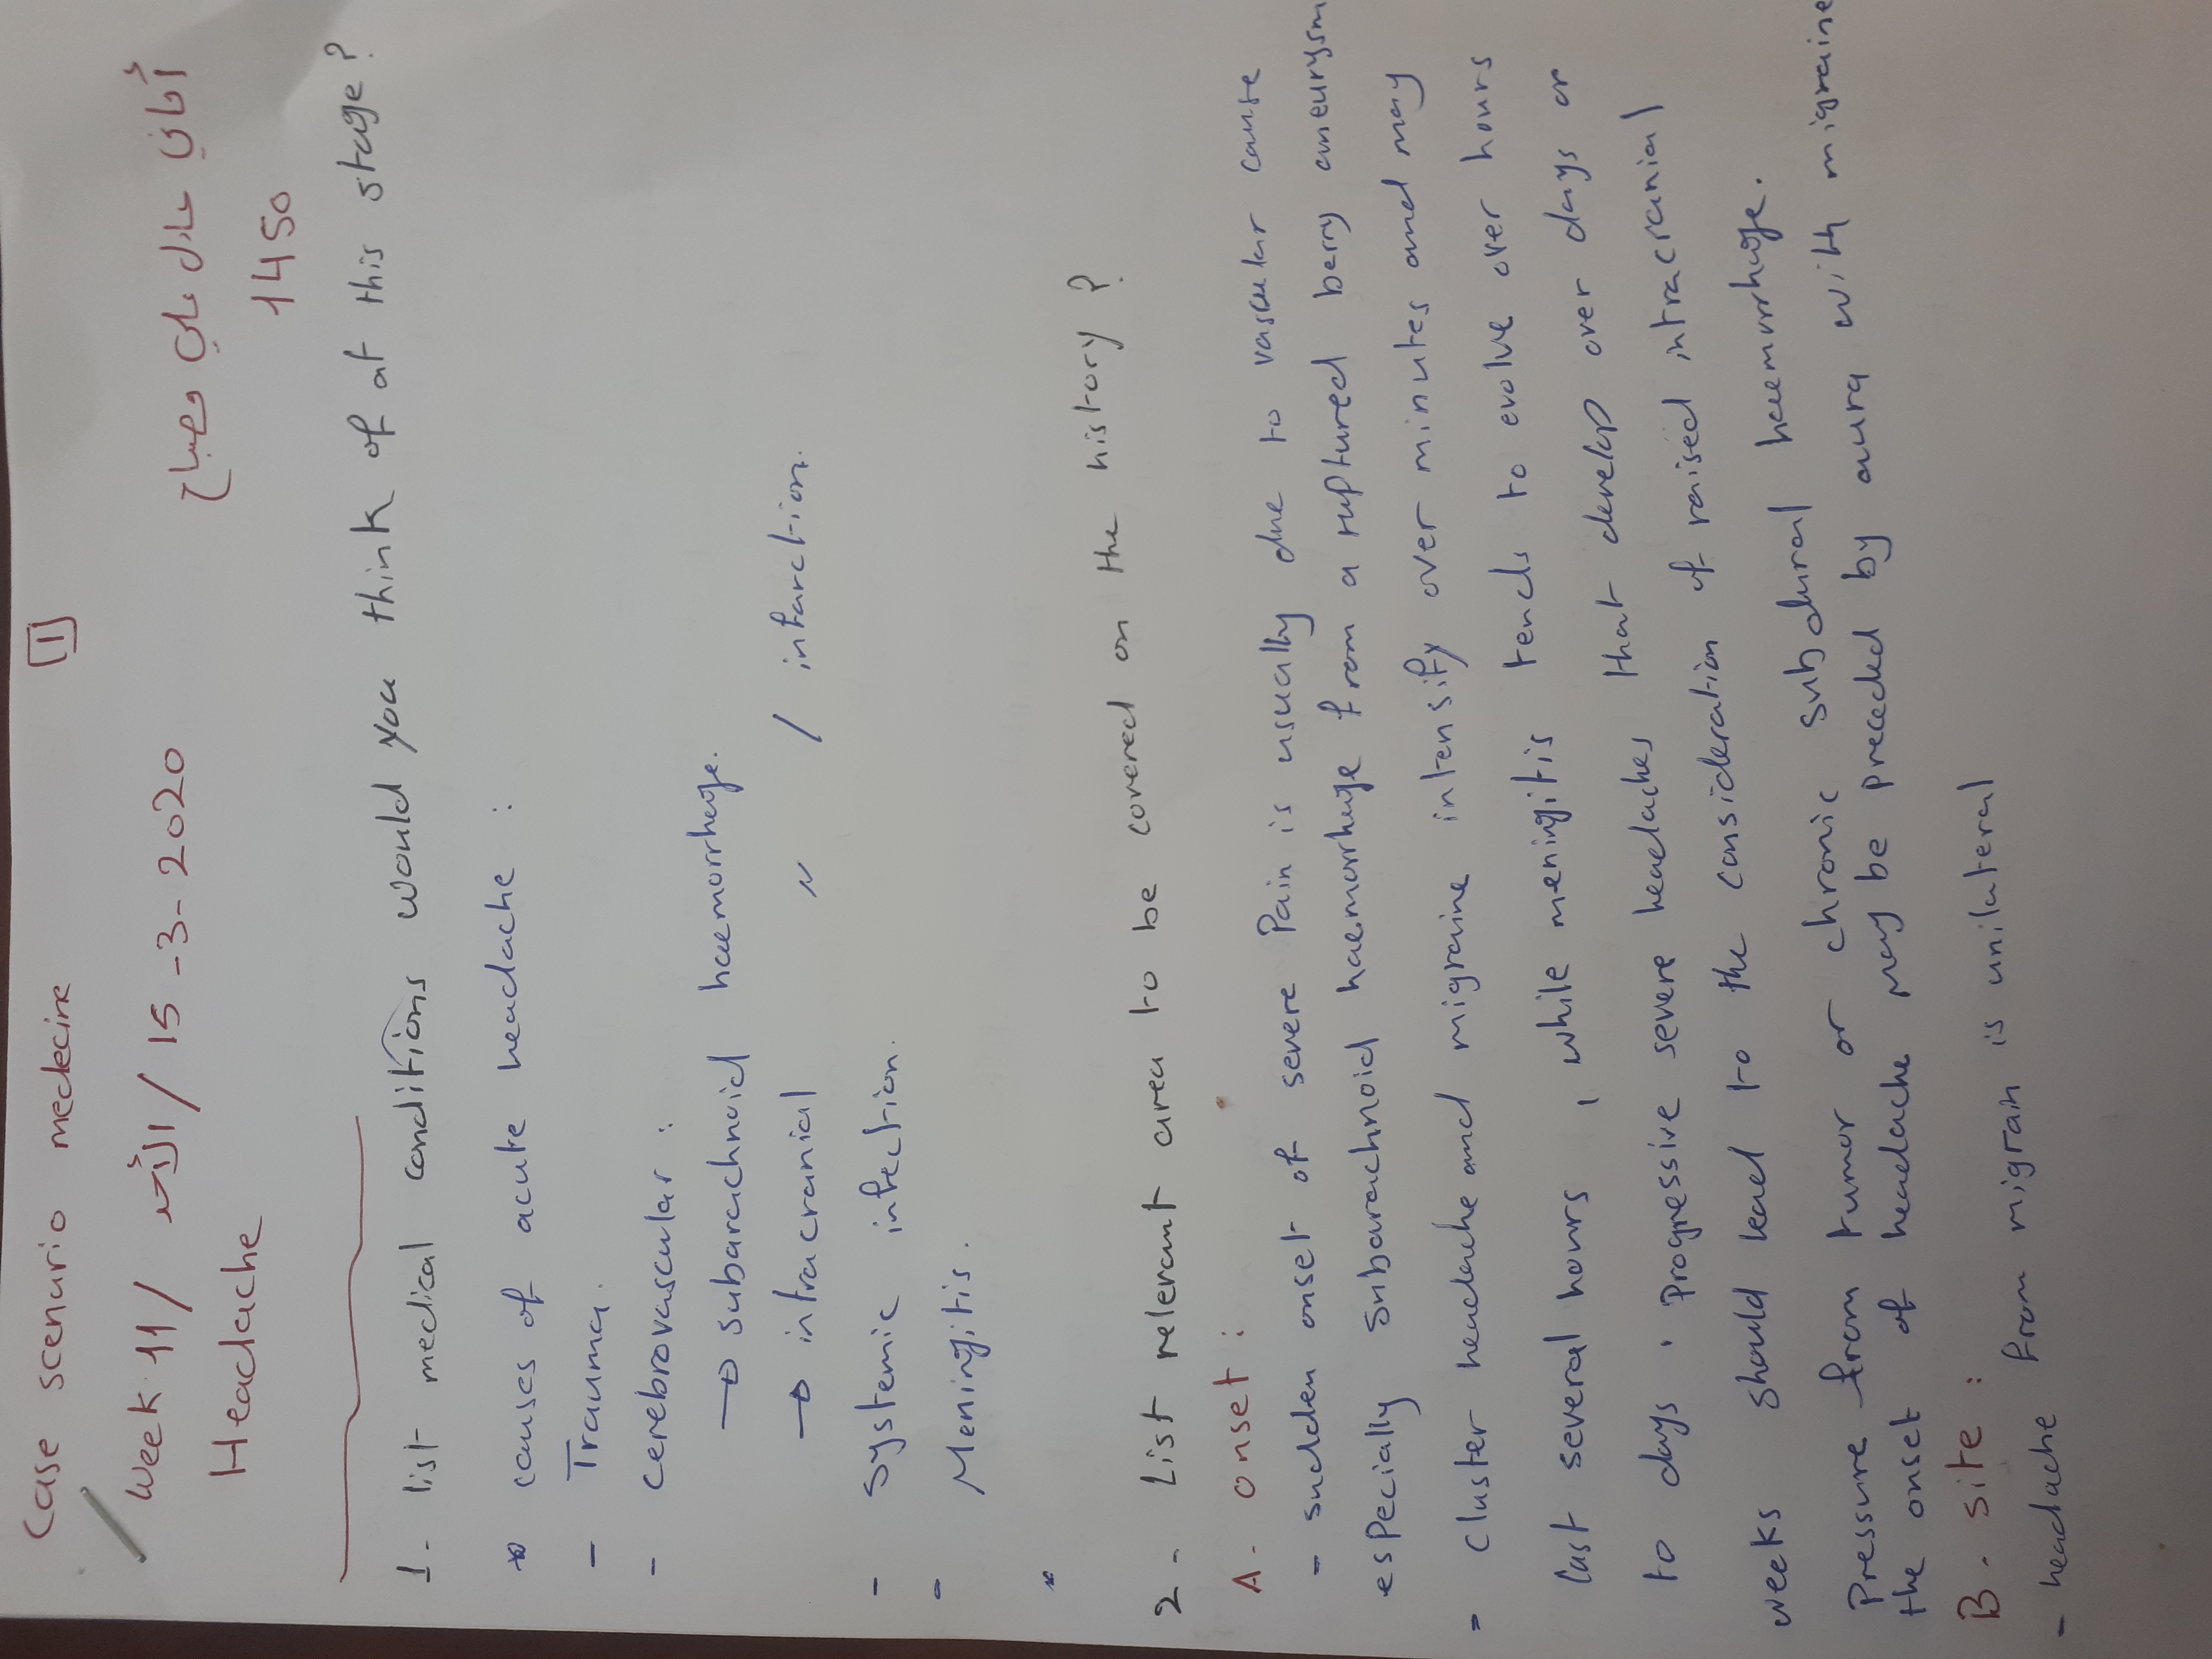 Case scenario medecine [1]
week 11 / الأحد / 15-3-2020
Headache
أماني عادل علي مصباح
1450
1- list medical conditions would you think of at this stage?
* causes of acute headache :
- Trauma.
- cerebrovascular :
→ subarachnoid haemorrhage.
→ intracranial " / infarction.
- Systemic infection.
- Meningitis.
2- List relevant area to be covered on the history ?
A- onset :
- sudden onset of severe Pain is usually due to vascular cause
especially subarachnoid haemorrhage from a ruptured berry aneurysm
- cluster headache and migraine intensify over minutes and may
last several hours , while meningitis tends to evolve over hours
to days . Progressive severe headaches that develop over days or
weeks should lead to the consideration of raised intracranial
Pressure from tumor or chronic subdural haemorrhage.
the onset of headache may be preceded by aura with migraine
B- site :
- headache from migrain is unilateral